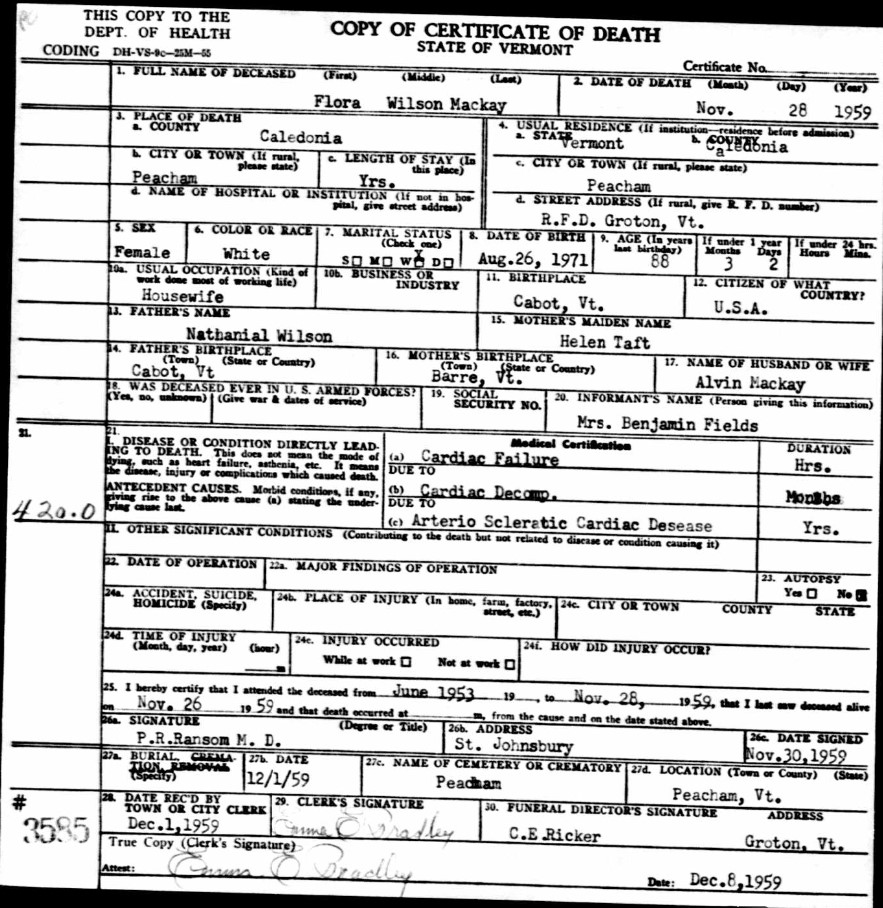 THIS COPY TO THE
DEPT. OF HEALTH
CODING DH-VS-9c—25M—55
COPY OF CERTIFICATE OF DEATH
STATE OF VERMONT
Certificate No.
1. FULL NAME OF DECEASED (First) (Middle) (Last)
Flora Wilson Mackay
2. DATE OF DEATH (Month) (Day) (Year)
Nov. 28 1959
3. PLACE OF DEATH
a. COUNTY
Caledonia
4. USUAL RESIDENCE (If institution—residence before admission)
a. STATE b. COUNTY
Vermont Caledonia
b. CITY OR TOWN (If rural, please state)
Peacham
c. LENGTH OF STAY (In this place)
Yrs.
c. CITY OR TOWN (If rural, please state)
Peacham
d. NAME OF HOSPITAL OR INSTITUTION (If not in hospital, give street address)
d. STREET ADDRESS (If rural, give R. F. D. number)
R.F.D. Groton, Vt.
5. SEX
Female
6. COLOR OR RACE
White
7. MARITAL STATUS
(Check one)
S☐ M☐ W☒ D☐
8. DATE OF BIRTH
Aug.26, 1971
9. AGE (In years last birthday)
88
If under 1 year
Months Days
3 2
If under 24 hrs.
Hours Mins.
10a. USUAL OCCUPATION (Kind of work done most of working life)
Housewife
10b. BUSINESS OR INDUSTRY
11. BIRTHPLACE
Cabot, Vt.
12. CITIZEN OF WHAT COUNTRY?
U.S.A.
13. FATHER'S NAME
Nathanial Wilson
15. MOTHER'S MAIDEN NAME
Helen Taft
14. FATHER'S BIRTHPLACE
(Town) (State or Country)
Cabot, Vt
16. MOTHER'S BIRTHPLACE
(Town) (State or Country)
Barre, Vt.
17. NAME OF HUSBAND OR WIFE
Alvin Mackay
18. WAS DECEASED EVER IN U. S. ARMED FORCES?
(Yes, no, unknown) (Give war & dates of service)
19. SOCIAL SECURITY NO.
20. INFORMANT'S NAME (Person giving this information)
Mrs. Benjamin Fields
21.
21.
I. DISEASE OR CONDITION DIRECTLY LEADING TO DEATH. This does not mean the mode of dying, such as heart failure, asthenia, etc. It means the disease, injury or complications which caused death.
ANTECEDENT CAUSES. Morbid conditions, if any, giving rise to the above cause (a) stating the underlying cause last.
420.0
Medical Certification
DURATION
(a) Cardiac Failure
Hrs.
DUE TO
(b) Cardiac Decomp.
Months
DUE TO
(c) Arterio Scleratic Cardiac Desease
Yrs.
II. OTHER SIGNIFICANT CONDITIONS (Contributing to the death but not related to disease or condition causing it)
22. DATE OF OPERATION
22a. MAJOR FINDINGS OF OPERATION
23. AUTOPSY
Yes ☐ No ☒
24a. ACCIDENT, SUICIDE, HOMICIDE (Specify)
24b. PLACE OF INJURY (In home, farm, factory, street, etc.)
24c. CITY OR TOWN COUNTY STATE
24d. TIME OF INJURY
(Month, day, year) (hour)
m
24e. INJURY OCCURRED
While at work ☐ Not at work ☐
24f. HOW DID INJURY OCCUR?
25. I hereby certify that I attended the deceased from June 1953 19 , to Nov. 28, 1959, that I last saw deceased alive
on Nov. 26 1959 and that death occurred at m, from the cause and on the date stated above.
26a. SIGNATURE (Degree or Title)
P.R.Ransom M. D.
26b. ADDRESS
St. Johnsbury
26c. DATE SIGNED
Nov.30,1959
27a. BURIAL, CREMATION, REMOVAL
(Specify)
27b. DATE
12/1/59
27c. NAME OF CEMETERY OR CREMATORY
Peacham
27d. LOCATION (Town or County) (State)
Peacham, Vt.
28. DATE REC'D BY TOWN OR CITY CLERK
Dec.1,1959
29. CLERK'S SIGNATURE
Emma O Bradley
30. FUNERAL DIRECTOR'S SIGNATURE ADDRESS
C.E.Ricker Groton, Vt.
#
3585
True Copy (Clerk's Signature)
Attest: Emma O Bradley
Date: Dec.8,1959